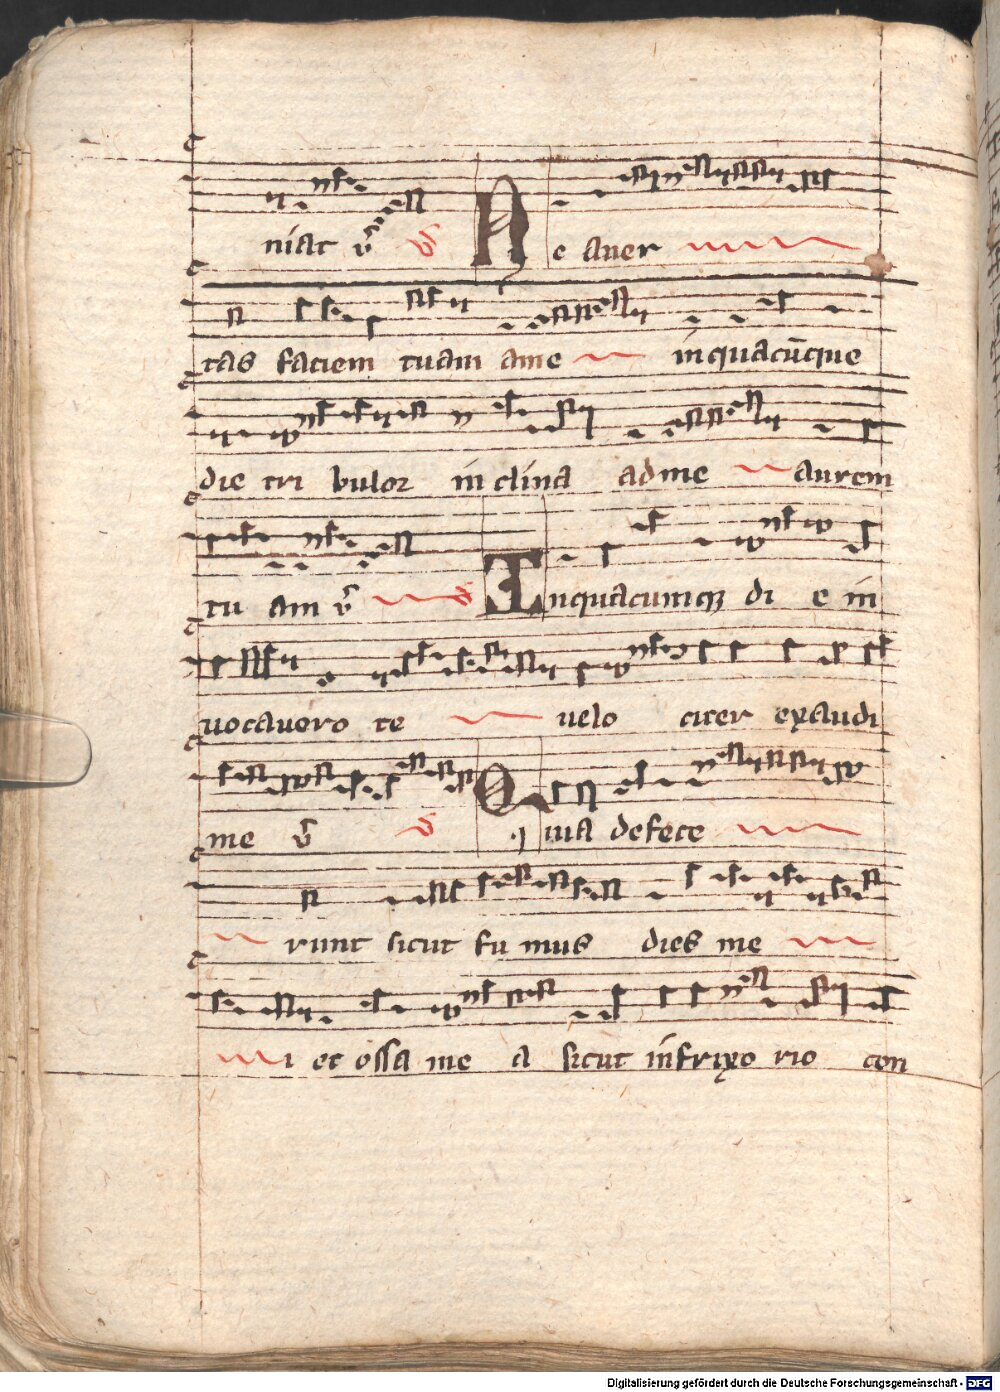 niat v̄ v̄ Ne auer
tas faciem tuam ame inquacūque
die tri bulor in clina adme aurem
tu am v̄ Inquacumqꝫ di e in
uocauero te uelo citer exaudi
me v̄ v̄ Quia defece
runt sicut fu mus dies me
i et ossa me a sicut infrixo rio con
Digitalisierung gefördert durch die Deutsche Forschungsgemeinschaft - DFG